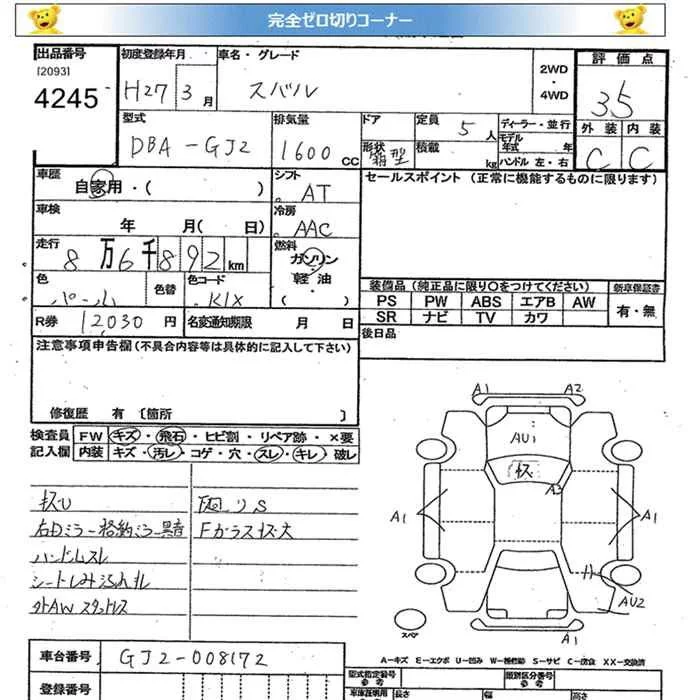 完全ゼロ切りコーナー
出品番号
[2093]
4245
初度登録年月
H27 3 月
車名・グレード
スバル
2WD
・
4WD
評価点
35
外装 内装
C C
型式
DBA-GJ2
排気量
1600 cc
ドア
形状
箱型
定員
5 人
積載
kg
ディーラー・並行
モデル年式 年
ハンドル 左・右
車歴
自家用・( )
シフト
AT
冷房
AAC
セールスポイント (正常に機能するものに限ります)
車検
年 月( 日)
走行
8万6千892km
燃料
ガソリン
・
軽油
( )
色
パール
色替
色コード
K1X
R券
12030 円
名変通知期限 月 日
装備品 (純正品に限り○をつけてください)
PS PW ABS エアB AW
SR ナビ TV カワ
新車保証書
有・無
後日品
注意事項申告欄 (不具合内容等は具体的に記入して下さい)
修復歴 有 〔箇所 〕
検査員記入欄
FW キズ・飛石・ヒビ割・リペア跡・×要
内装 キズ・汚レ・コゲ・穴・スレ・キレ・破レ
キズU
右Dミラー格納ミラー異音
ハンドルスレ
シートしみ汚れ
外AWスタットレス
凹りS
Fガラスキズ大
A1 A2
AU1
キズ
A3
A1 A1
AU2
A1
スペア
A-キズ E-エクボ U-凹み W-補修跡 S-サビ C-腐食 XX-交換済
車台番号
GJ2-008172
登録番号
型式指定番号
参考
類別区分番号
参考
車庫証明用
参考
長さ
幅
高さ